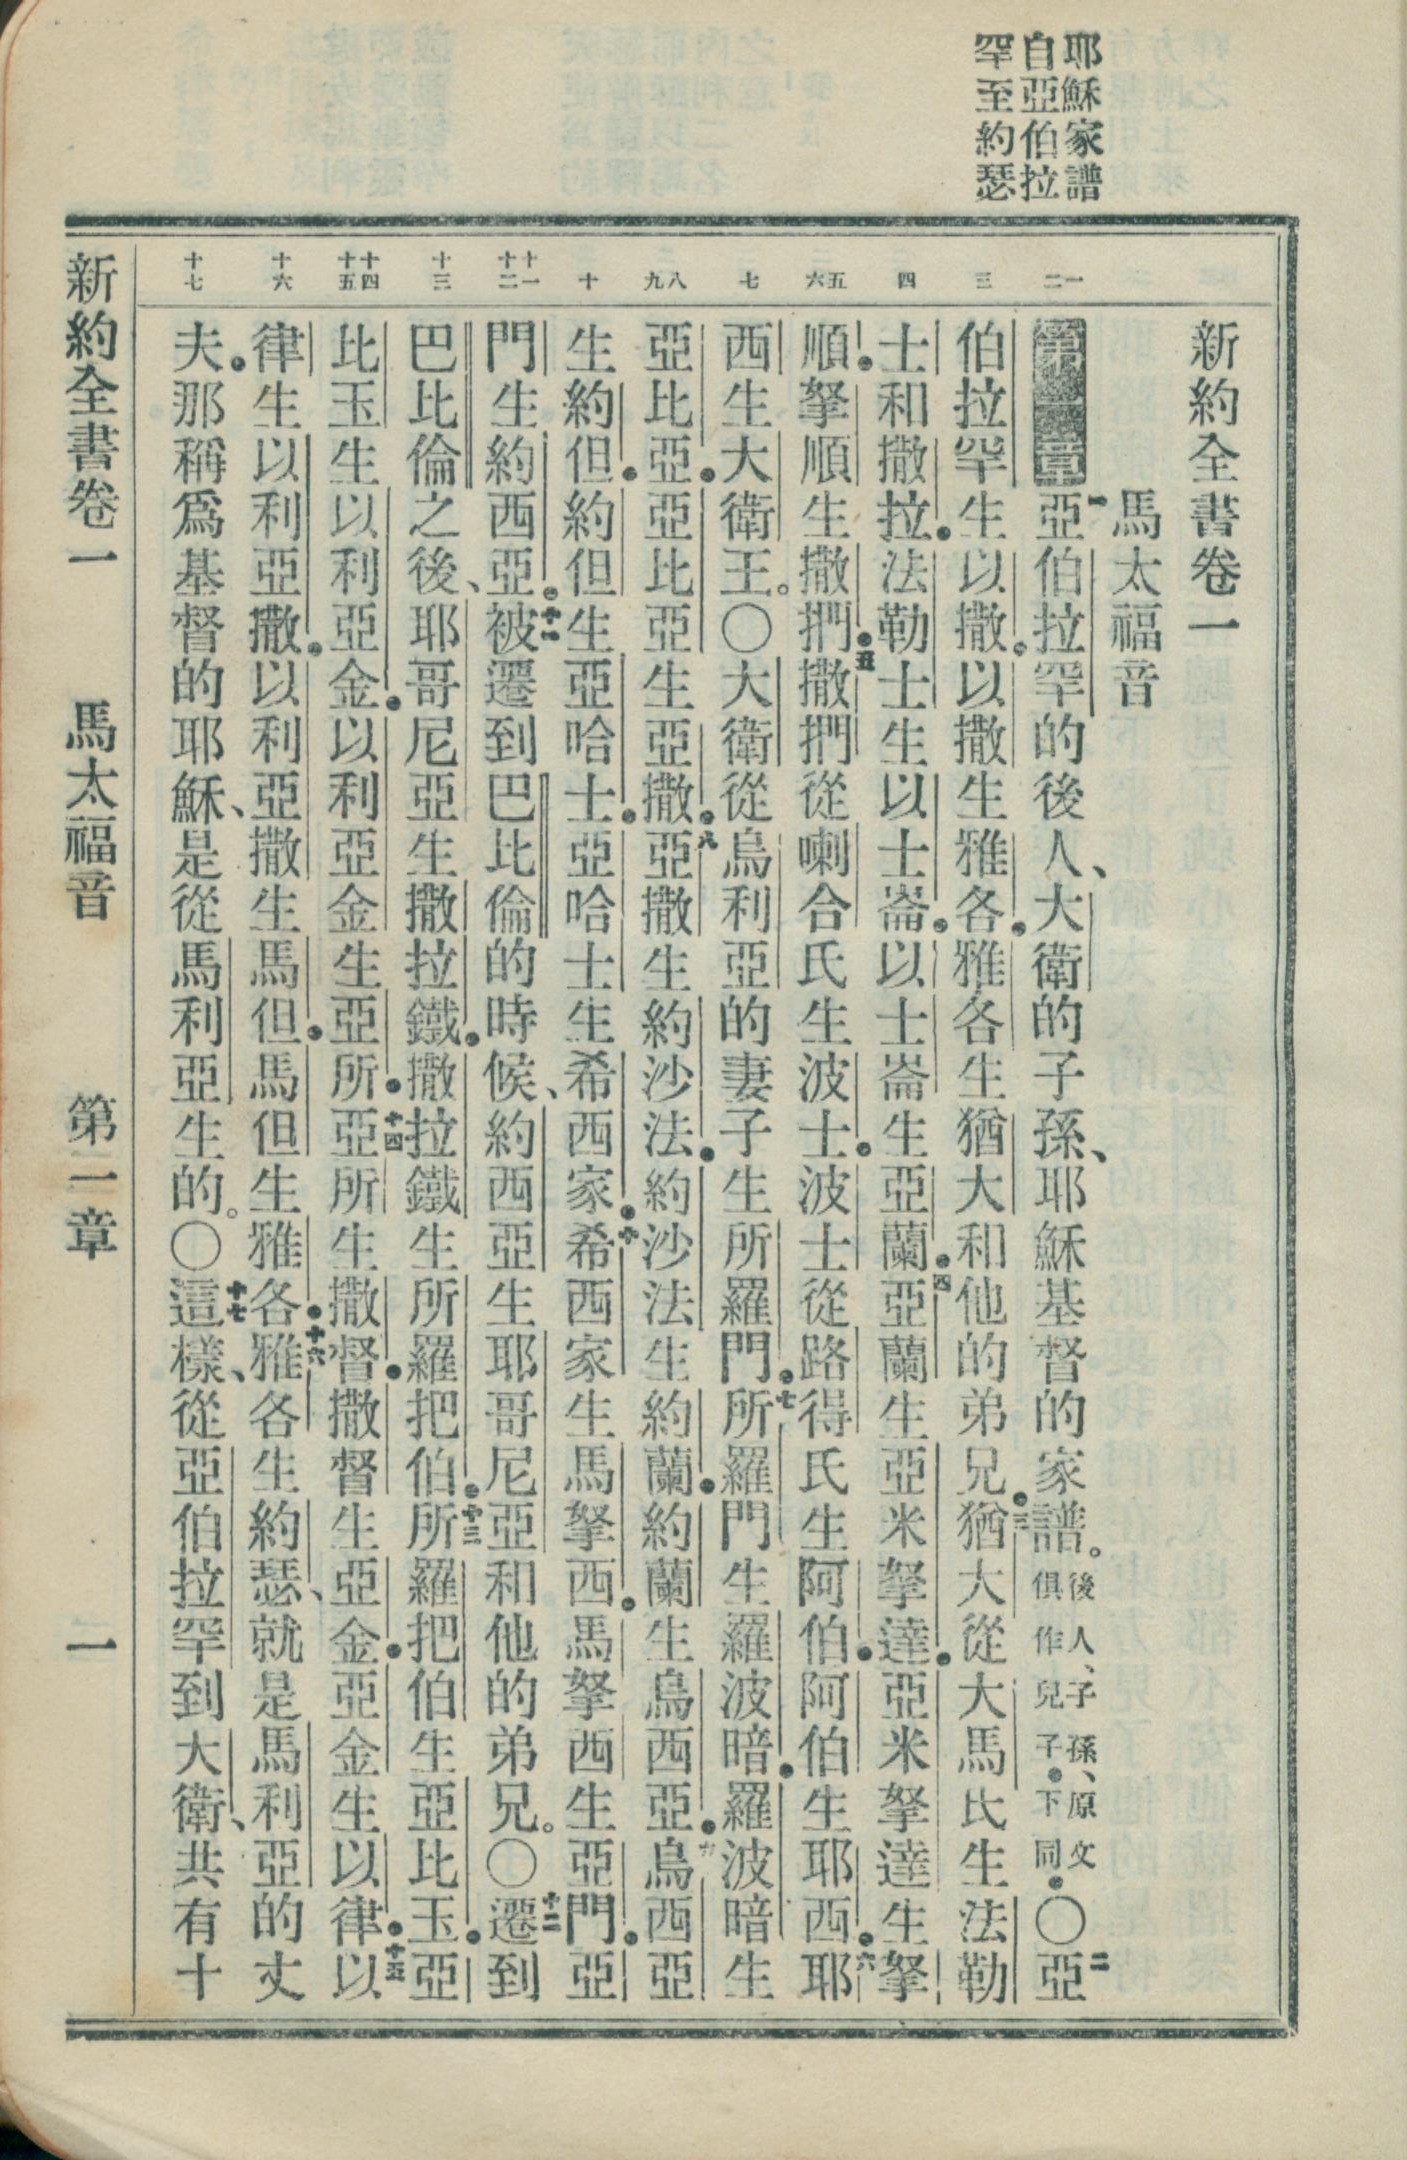 耶穌家譜
自亞伯拉
罕至約瑟
新約全書卷一
馬太福音
一二
三
四
五六
七
八九
十
十一十二
十三
十四十五
十六
十七
第一章 一亞伯拉罕的後人、大衛的子孫、耶穌基督的家譜。後人、子孫、原文俱作兒子。下同。〇二亞
伯拉罕生以撒。以撒生雅各。雅各生猶大和他的弟兄。三猶大從大馬氏生法勒
士和撒拉。法勒士生以士崙。以士崙生亞蘭。四亞蘭生亞米拏達。亞米拏達生拏
順。拏順生撒捫。五撒捫從喇合氏生波士。波士從路得氏生阿伯。阿伯生耶西。六耶
西生大衛王。〇大衛從烏利亞的妻子生所羅門。七所羅門生羅波暗。羅波暗生
亞比亞。亞比亞生亞撒。八亞撒生約沙法。約沙法生約蘭。約蘭生烏西亞。九烏西亞
生約但。約但生亞哈士。亞哈士生希西家。十希西家生馬拏西。馬拏西生亞門。亞
門生約西亞。十一被遷到巴比倫的時候、約西亞生耶哥尼亞和他的弟兄。〇十二遷到
巴比倫之後、耶哥尼亞生撒拉鐵。撒拉鐵生所羅把伯。十三所羅把伯生亞比玉。亞
比玉生以利亞金。以利亞金生亞所。十四亞所生撒督。撒督生亞金。亞金生以律。十五以
律生以利亞撒。以利亞撒生馬但。馬但生雅各。十六雅各生約瑟、就是馬利亞的丈
夫。那稱爲基督的耶穌、是從馬利亞生的。〇十七這樣、從亞伯拉罕到大衛、共有十
新約全書卷一 馬太福音 第一章 一